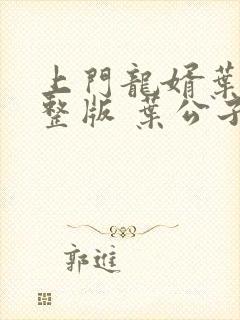 上門龍婿葉
整版 葉公子
郭進